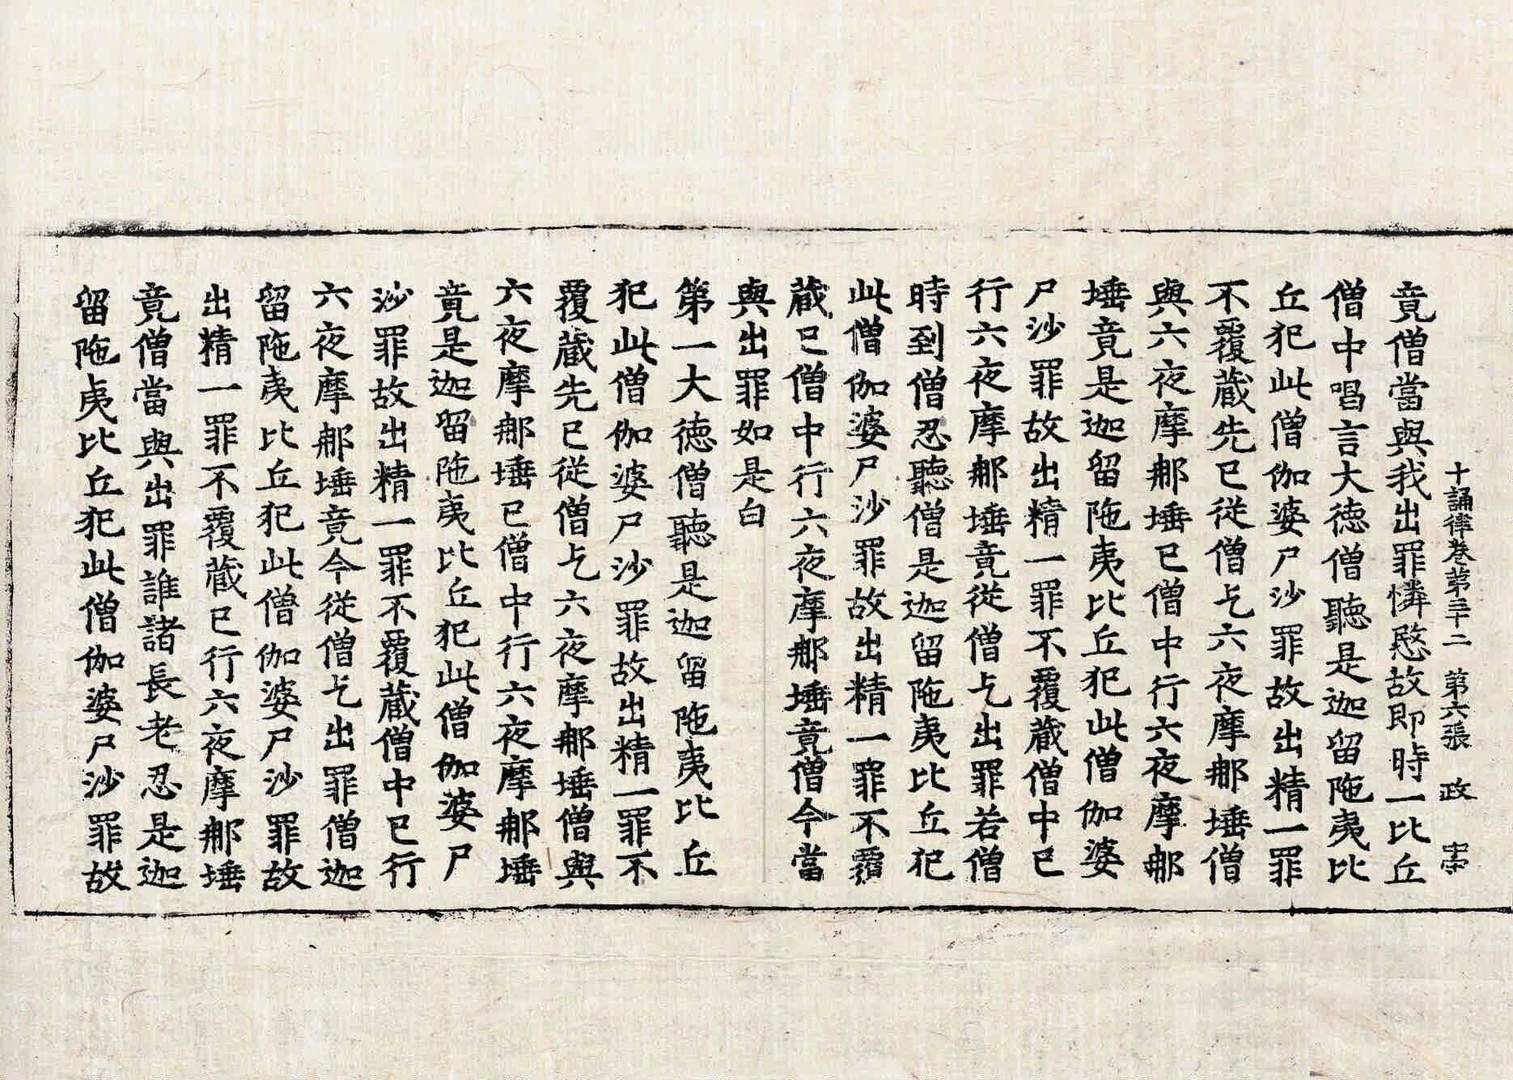 十誦律卷第三十二 第六張 政
竟僧當與我出罪憐愍故即時一比丘
僧中唱言大徳僧聽是迦留陁夷比
丘犯此僧伽婆尸沙罪故出精一罪
不覆藏先已從僧乞六夜摩那埵僧
與六夜摩那埵已僧中行六夜摩那
埵竟是迦留陁夷比丘犯此僧伽婆
尸沙罪故出精一罪不覆藏僧中已
行六夜摩那埵竟從僧乞出罪若僧
時到僧忍聽僧是迦留陁夷比丘犯
此僧伽婆尸沙罪故出精一罪不覆
藏已僧中行六夜摩那埵竟僧今當
與出罪如是白
第一大徳僧聽是迦留陁夷比丘
犯此僧伽婆尸沙罪故出精一罪不
覆藏先已從僧乞六夜摩那埵僧與
六夜摩那埵已僧中行六夜摩那埵
竟是迦留陁夷比丘犯此僧伽婆尸
沙罪故出精一罪不覆藏僧中已行
六夜摩那埵竟今從僧乞出罪僧迦
留陁夷比丘犯此僧伽婆尸沙罪故
出精一罪不覆藏已行六夜摩那埵
竟僧當與出罪誰諸長老忍是迦
留陁夷比丘犯此僧伽婆尸沙罪故